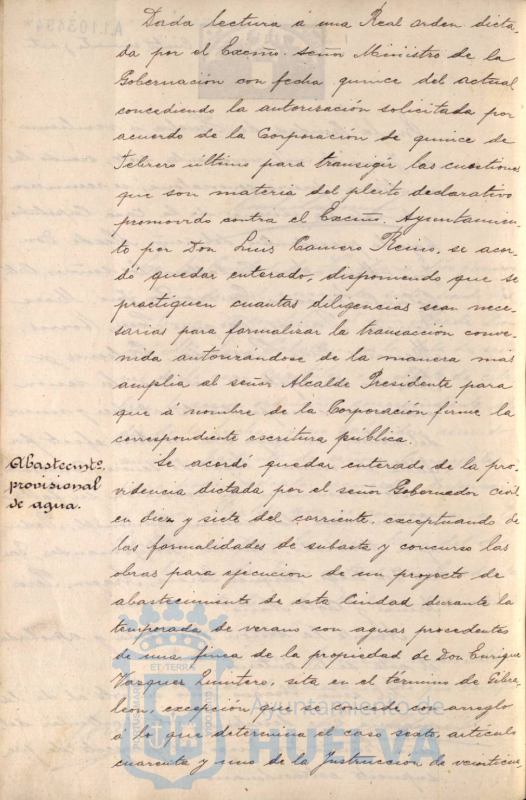 Dada lectura á una Real orden dicta-
da por el Excmo. señor Ministro de la
Gobernación con fecha quince del actual
concediendo la autorización solicitada por
acuerdo de la Corporación de quince de
Febrero último para transigir las cuestiones
que son materia del pleito declarativo
promovido contra el Excmo. Ayuntamien-
to por Don Luis Camero Reino, se acor-
dó quedar enterado, disponiendo que se
practiquen cuantas diligencias sean nece-
sarias para formalizar la transacción conve-
nida autorizándose de la manera mas
amplia al señor Alcalde Presidente para
que á nombre de la Corporación firme la
correspondiente escritura pública.
Abastecimto.
provisional
de agua.
Se acordó quedar enterado de la pro-
videncia dictada por el señor Gobernador civil
en diez y siete del corriente, exceptuando de
las formalidades de subasta y concurso las
obras para ejecucion de un proyecto de
abastecimiento de esta Ciudad durante la
temporada de verano con aguas procedentes
de una finca de la propiedad de Don Enrique
Vazquez Quintero, sita en el término de Gibra-
leon, excepción que se concede con arreglo
a lo que determina el caso sexto, artículo
cuarenta y uno de la Instruccion de veinticua-
Ayuntamiento de
HUELVA